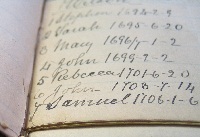 1 Stephen 1693-2-9
2 Sarah 1695-6-20
3 Mary 1696/7-1-2
4 John 1699-2-2
5 Rebecca 1701-6-20
6 John 1703-7-14
7 Samuel 1706-1-6